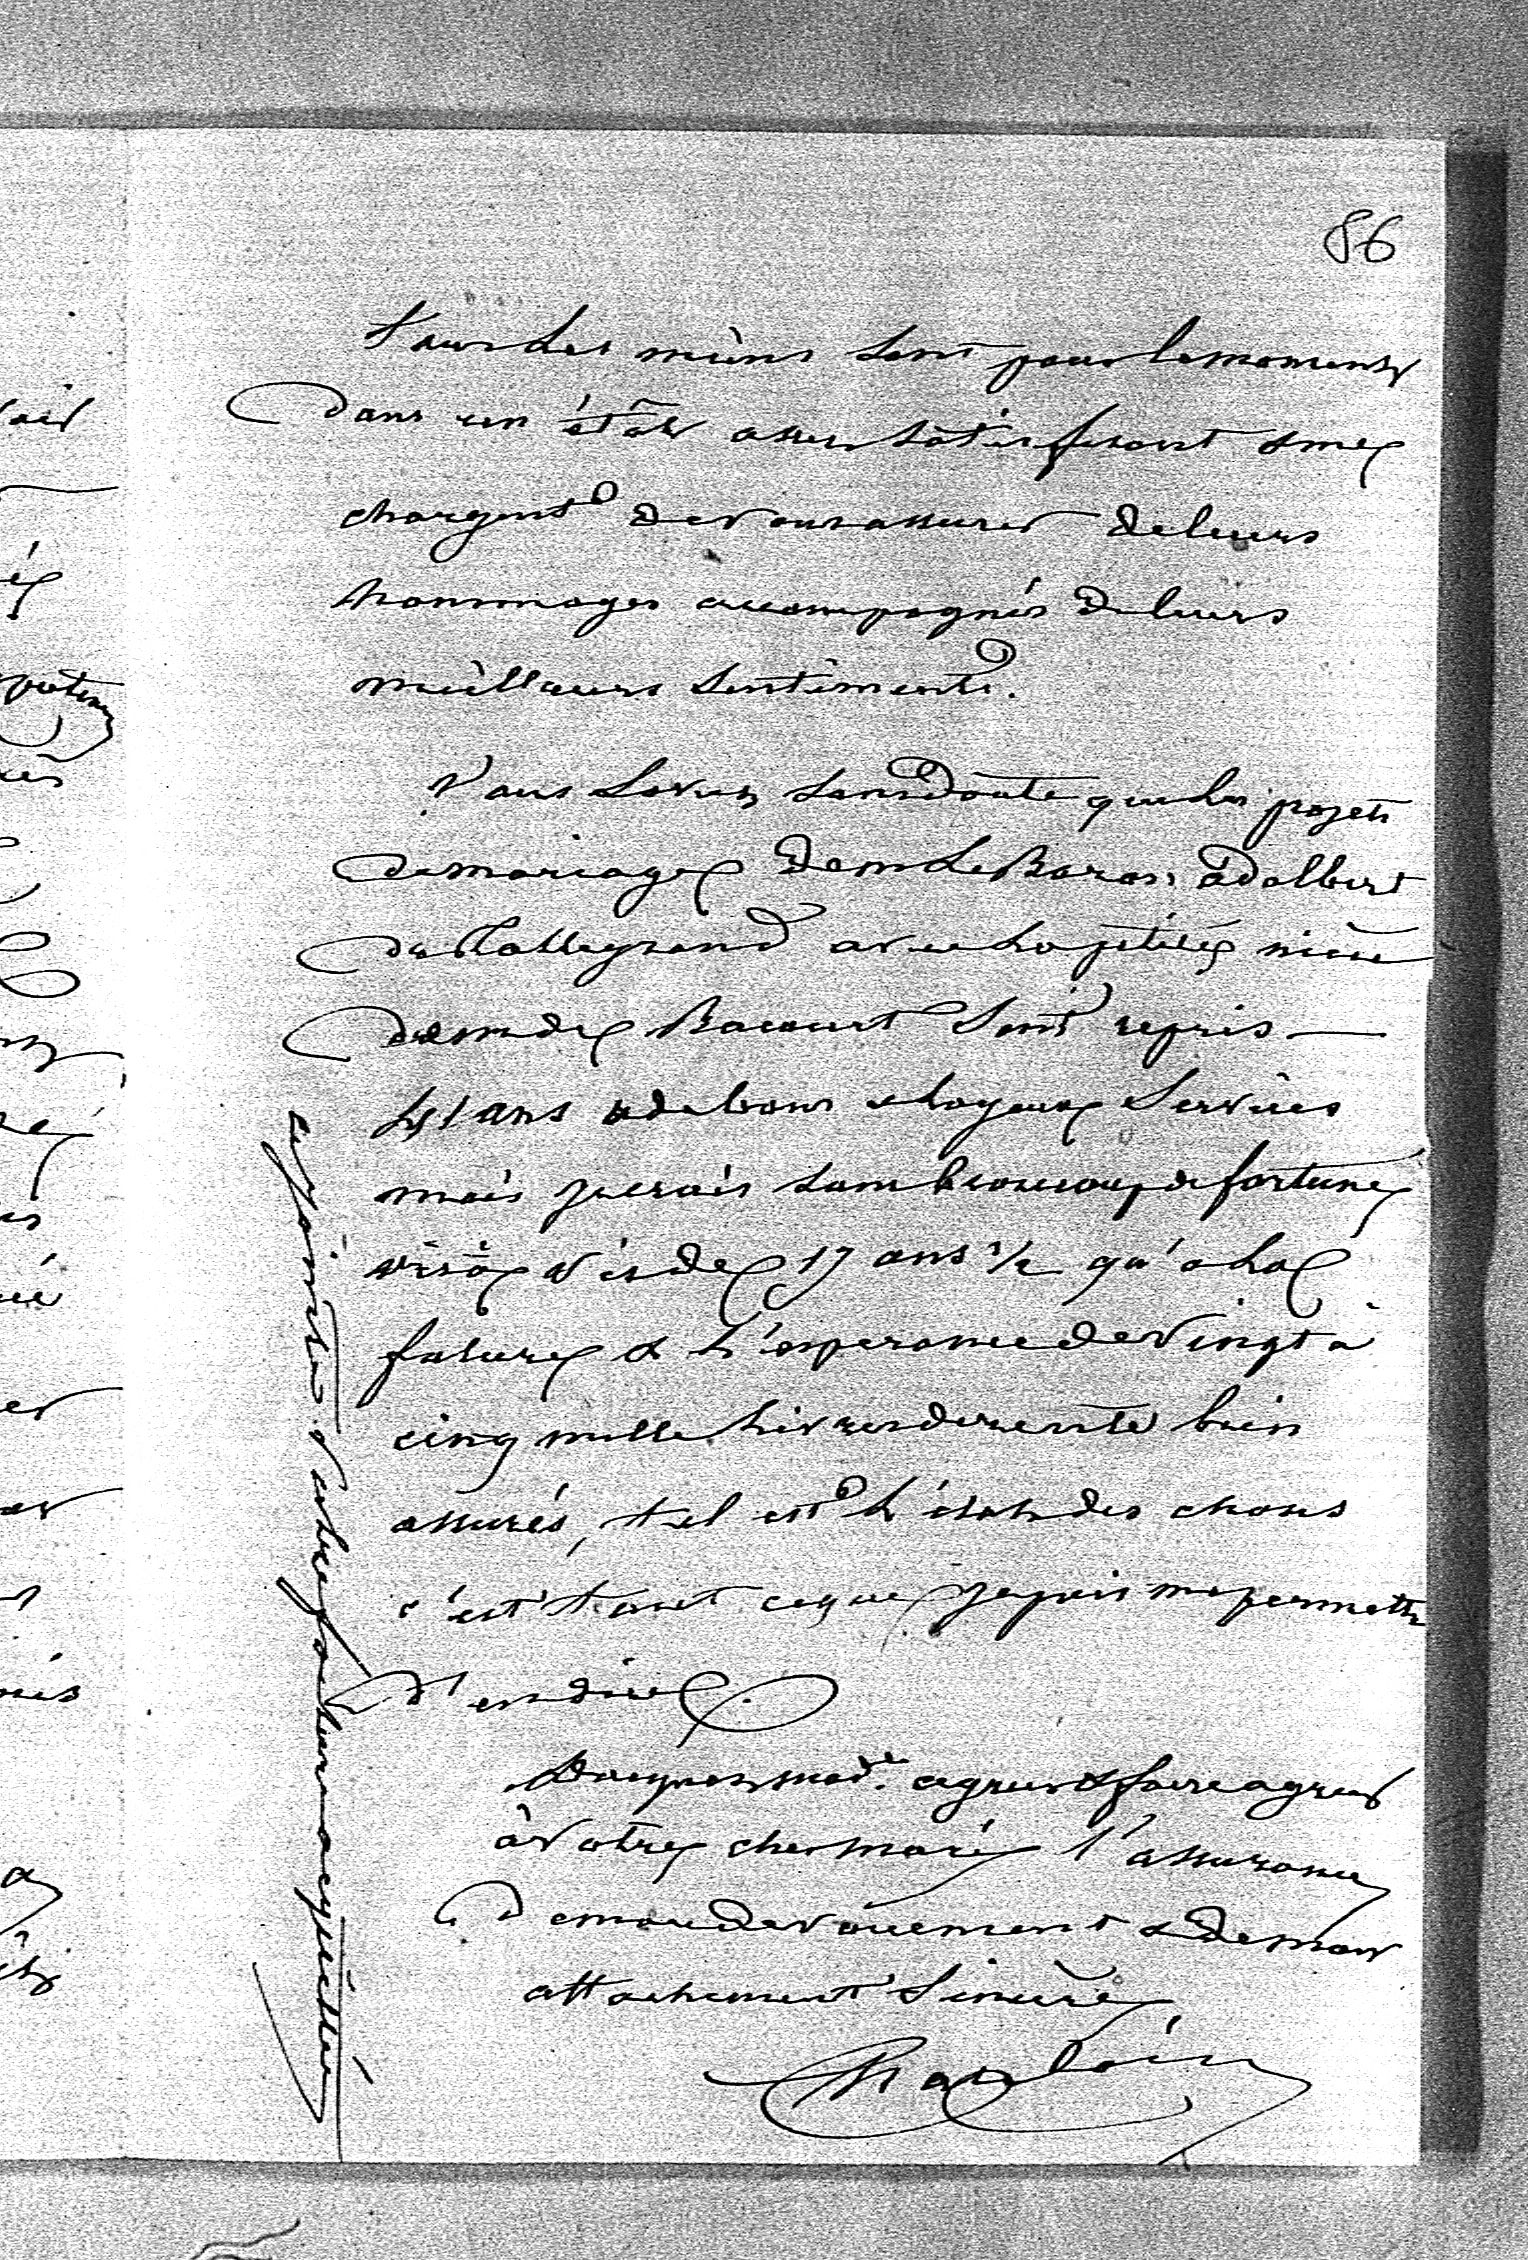 86
tous les miens sont pour le moment
dans un état assez satisfesant & me
chargent de vous assurer de leurs
hommages accompagnés de leurs
meilleurs sentiments.
Vous savez sans doute que les projets
de mariage de m le Baron adalbert
de Talleyrand avec la petite nièce
de m de Bacourt sont repris
ans de bons & loyaux services
mais je crois sans beaucoup de fortune
vis à vis de 17 ans ½ qu'a la
future & l'esperance de vingt à
cinq mille livres de rente bien
assurés, tel est l'état des choses
c'est tout ce que je puis me permettre
d'en dire.
Daignez mad.e agreer & faire agreer
à votre cher mari l'assurance
de mon devouement & de mon
attachement sincère
ci joint